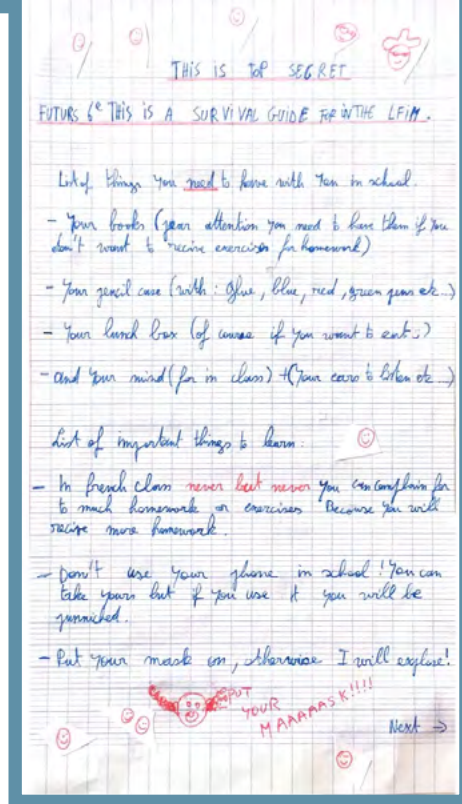 THIS IS TOP SEGRET
FUTURS 6e THIS IS A SURVIVAL GUIDE FOR IN THE LFIM.
List of things you need to have with You in school.
- Your books (pear attention you need to have them if You
don't want to recive exercises for homework)
- Your pencil case (with: Glue, blue, red, green pens etc...)
- Your lunch box (of course if you want to eat...)
- and Your mind (for in class) + (Your ears to listen etc...)
List of important things to learn:
- In french class never but never you can complain for
to much homework or exercises Because you will
recive more homework.
- Don't use your phone in school! You can
take yours but if you use it you will be
punniched.
- Put your mask on, otherwise I will explose!
PUT
YOUR
MAAAAASK!!!!
Next →